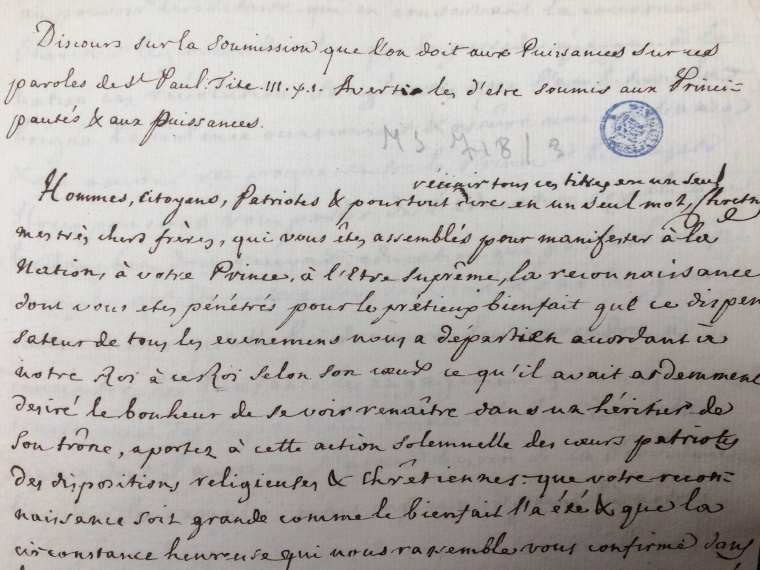 Discours sur la Soumission que l'on doit aux Puissances sur ces
paroles de St Paul. Tite. III. ℣. 1. Avertis les d'etre soumis aux Princi-
pautés & aux Puissances.
MS 718 / 3
réunir tous ces titres en un seul
Hommes, Citoyens, Patriotes & pour tout dire en un seul mot, Chretiens
mes très chers frères, qui vous êtes assemblés pour manifester à la
Nation, à votre Prince, à l'Etre suprême, la reconnaissance
dont vous etes pénétrés pour le prétieux bienfait que ce dispen
sateur de tous les evenemens nous a départi en acordant à
notre Roi à ce Roi selon son cœur ce qu'il avait ardemment
desiré le bonheur de se voir renaître dans un héritier de
son trône, aportez à cette action solemnelle des cœurs patriotes
des dispositions religieuses & Chrêtiennes: que votre recon-
naissance soit grande comme le bienfait l'a été & que la
circonstance heureuse qui nous rassemble vous confirme dans